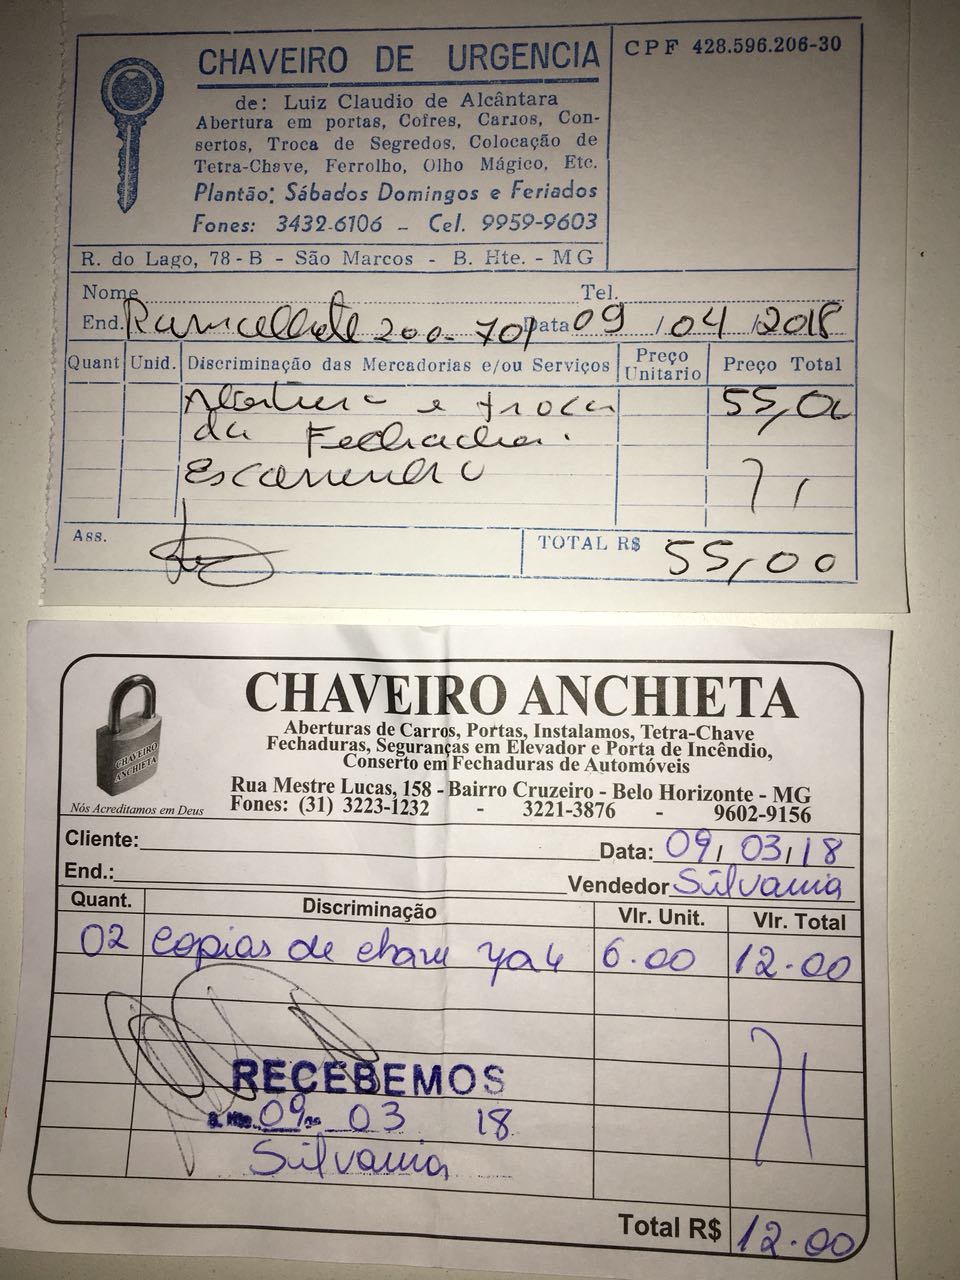 CHAVEIRO DE URGENCIA
CPF 428.596.206-30
de: Luiz Claudio de Alcântara
Abertura em portas, Cofres, Carros, Con-
sertos, Troca de Segredos, Colocação de
Tetra-Chave, Ferrolho, Olho Mágico, Etc.
Plantão: Sábados Domingos e Feriados
Fones: 3432-6106 - Cel. 9959-9603
R. do Lago, 78-B - São Marcos - B. Hte. - MG
Nome Tel.
End. 200-701 Data 09/04/2018
Quant Unid. Discriminação das Mercadorias e/ou Serviços Preço Unitario Preço Total
e troca 55,00
da Fechadura.
Ass.
TOTAL R$ 55,00
CHAVEIRO ANCHIETA
Aberturas de Carros, Portas, Instalamos, Tetra-Chave
Fechaduras, Seguranças em Elevador e Porta de Incêndio,
Conserto em Fechaduras de Automóveis
CHAVEIRO
ANCHIETA
Nós Acreditamos em Deus
Rua Mestre Lucas, 158 - Bairro Cruzeiro - Belo Horizonte - MG
Fones: (31) 3223-1232 - 3221-3876 - 9602-9156
Cliente: Data: 09/03/18
End.: Vendedor Silvania
Quant. Discriminação Vlr. Unit. Vlr. Total
02 copias de chave 6.00 12.00
RECEBEMOS
09 03 18
Silvania
Total R$ 12.00